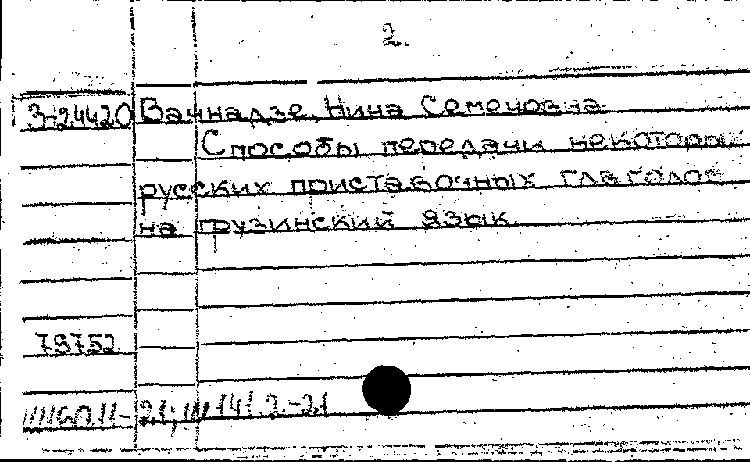 2.
3-24420 Вачнадзе, Нина Семеновна
Способы передачи некоторых
русских приставочных глаголов
на грузинский язык.
79752
141.2.-21